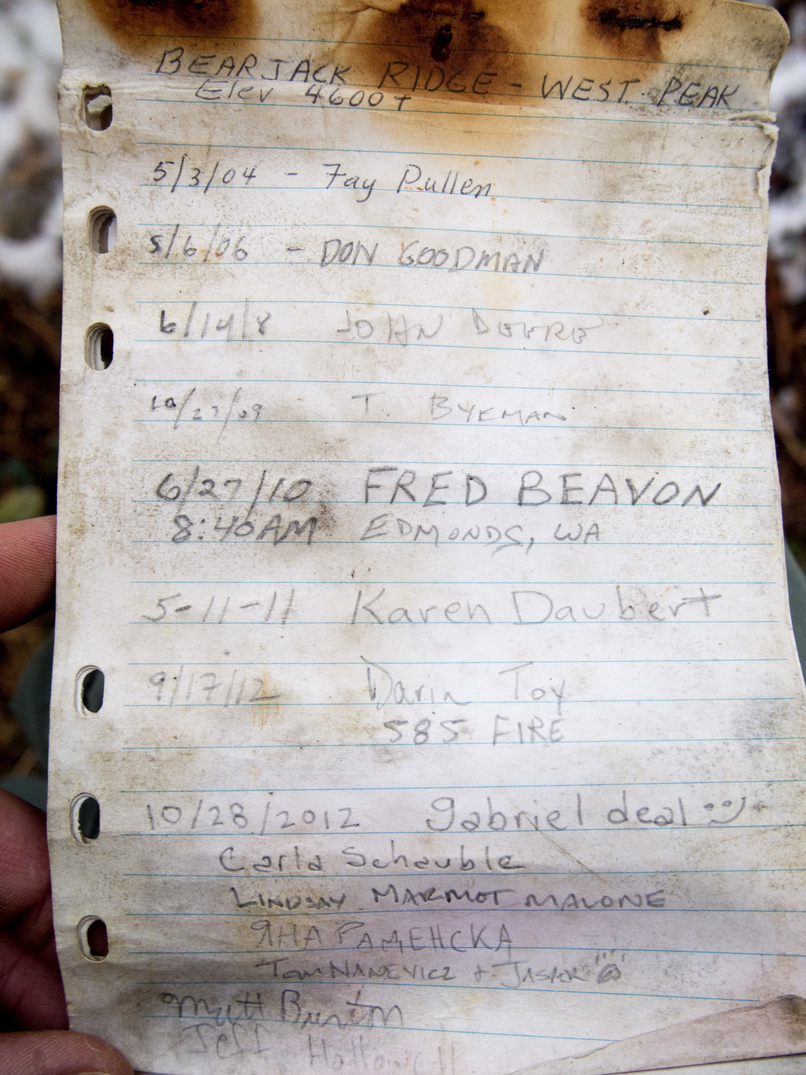 BEARJACK RIDGE - WEST PEAK
Elev 4600+
5/3/04 - Fay Pullen
5/6/06 - DON GOODMAN
6/14/8 JOHN DEERE
10/27/09 T. BYKMAN
6/27/10 FRED BEAVON
8:40AM EDMONDS, WA
5-11-11 Karen Daubert
9/17/12 Darin Toy
585 FIRE
10/28/2012 gabriel deal
Carla Schauble
LINDSAY MARMOT MALONE
ЯНА РАДЕНСКА
TOM NANEVICZ + JASPER
Matt Burton
Jeff